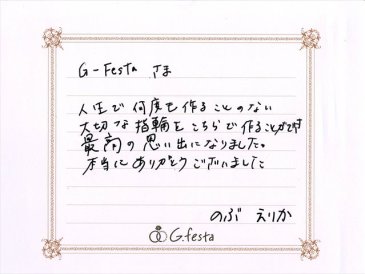 G-Festa さま
人生で何度も作ることのない
大切な指輪をこちらで作ることができ
最高の思い出になりました。
本当にありがとうございました
のぶ えりか
G.festa